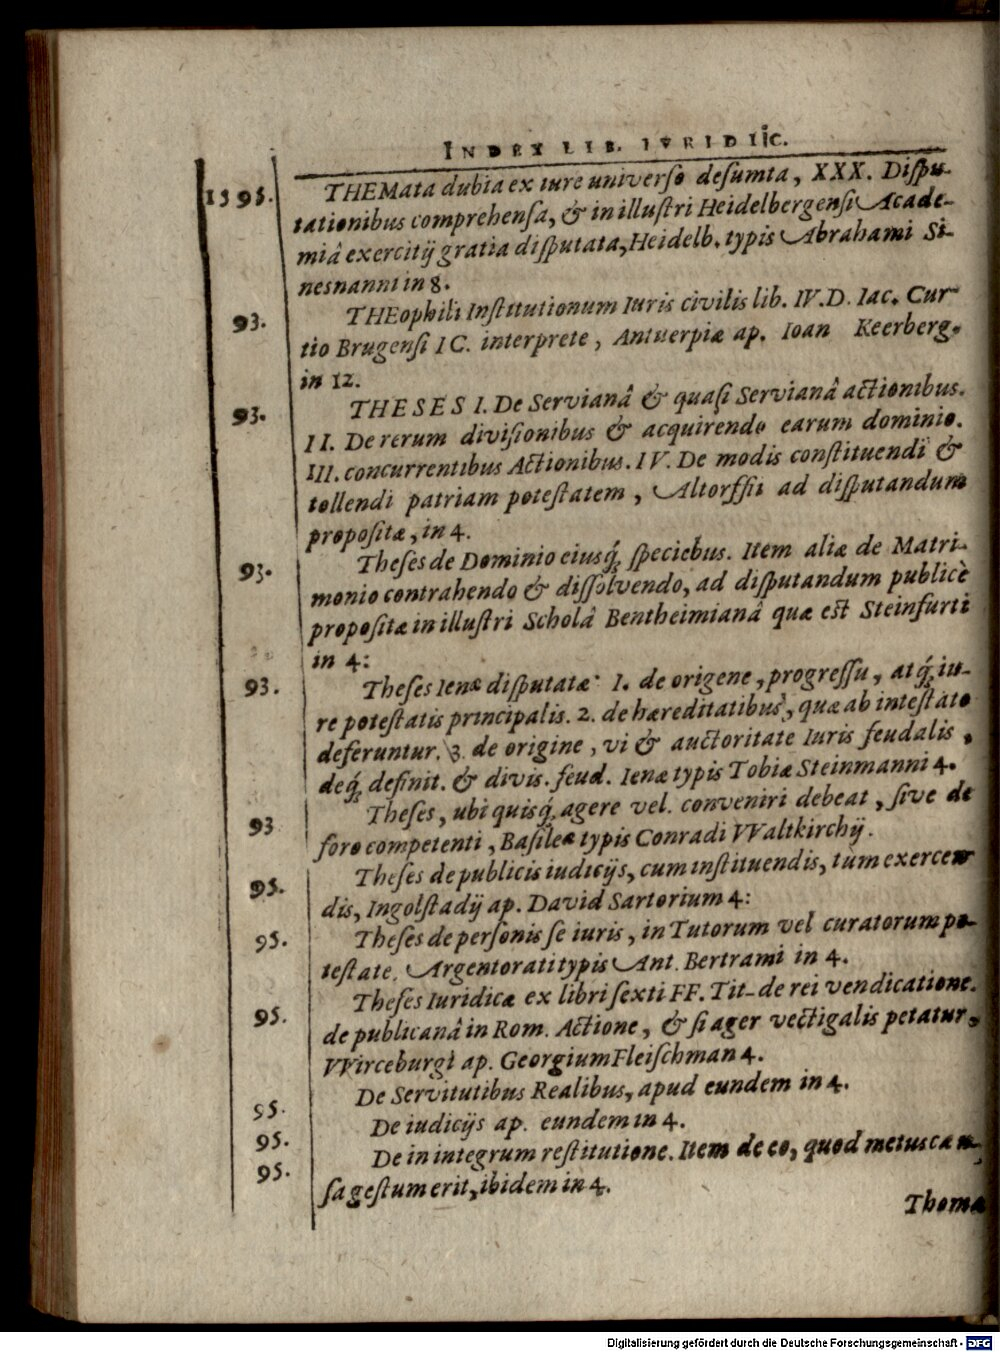 INDEX LIB. IVRIDIIC.
1595. THEMata dubia ex iure universo desumta, XXX. Dispu-
tationibus comprehensa, & in illustri Heidelbergensi Acade-
miâ exercitij gratia disputata, Heidelb. typis Abrahami Si-
nesnanni in 8.
93. THEophili Institutionum Iuris civilis lib. IV. D. Iac. Cur
tio Brugensi IC. interprete, Antuerpiæ ap. Ioan Keerberg.
in 12.
93. THESES I. De Servianâ & quasi Servianâ actionibus.
II. De rerum divisionibus & acquirendo earum dominio.
III. concurrentibus Actionibus. IV. De modis constituendi &
tollendi patriam potestatem, Altorffii ad disputandum
propositæ, in 4.
93. Theses de Dominio eiusq́; speciebus. Item aliæ de Matri-
monio contrahendo & dissolvendo, ad disputandum publicè
propositæ in illustri Scholâ Bentheimianâ quæ est Steinfurti
in 4:
93. Theses Ienæ disputatæ: 1. de origene, progressu, atq́; iu-
re potestatis principalis. 2. de hæreditatibus, quæ ab intestato
deferuntur. 3. de origine, vi & auctoritate Iuris feudalis,
deq́; definit. & divis. feud. Ienæ typis Tobiæ Steinmanni 4.
93 Theses, ubi quisq́; agere vel. conveniri debeat, sive de
foro competenti, Basileæ typis Conradi VValtkirchij.
95. Theses de publicis iudicijs, cum instituendis, tùm exercen
dis, Ingolstadij ap. David Sartorium 4:
95. Theses de personis se iuris, in Tutorum vel curatorum po-
testate. Argentorati typis Ant. Bertrami in 4.
95. Theses Iuridicæ ex libri sexti FF. Tit- de rei vendicatione.
de publicanâ in Rom. Actione, & si ager vectigalis petatur,
VVirceburgi ap. Georgium Fleischman 4.
95. De Servitutibus Realibus, apud eundem in 4.
95. De iudicijs ap. eundem in 4.
95. De in integrum restitutione. Item de eo, quod metus cau-
sa gestum erit, ibidem in 4.
Thoma
Digitalisierung gefördert durch die Deutsche Forschungsgemeinschaft - DFG